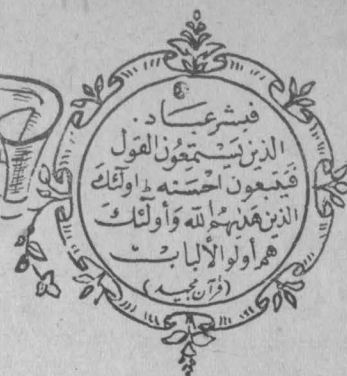 فبشر عباد۔
الذين يستمعون القول
فيتبعون احسنه ط اولئك
الذين هدىهم الله وأولئك
هم أولو الألباب
(قرآن مجيد)